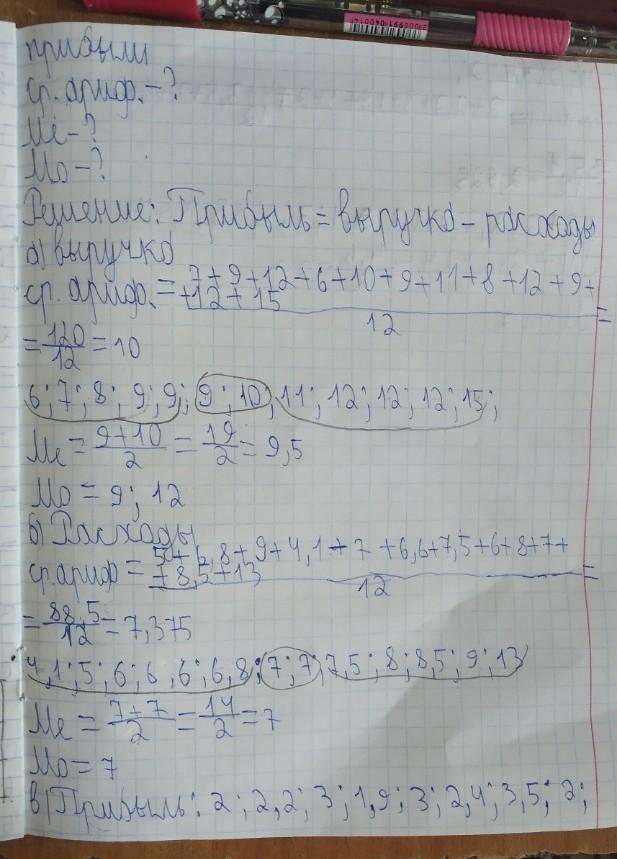 прибыли
ср. ариф. - ?
Ме - ?
Мо - ?
Решение: Прибыль = выручка - расходы
а) выручка
ср. ариф. = 7+9+12+6+10+9+11+8+12+9+
+12+15
12
=
= 120/12 = 10
6; 7; 8; 9; 9; 9; 10; 11; 12; 12; 12; 15;
Ме = 9+10/2 = 19/2 = 9,5
Мо = 9; 12
б) Расходы
ср. ариф = 5+6,8+9+4,1+7+6,6+7,5+6+8+7+
+8,5+13
12
=
= 88,5/12 = 7,375
4,1; 5; 6; 6,6; 6,8; 7; 7; 7,5; 8; 8,5; 9; 13
Ме = 7+7/2 = 14/2 = 7
Мо = 7
в) Прибыль: 2; 2,2; 3; 1,9; 3; 2,4; 3,5; 2;